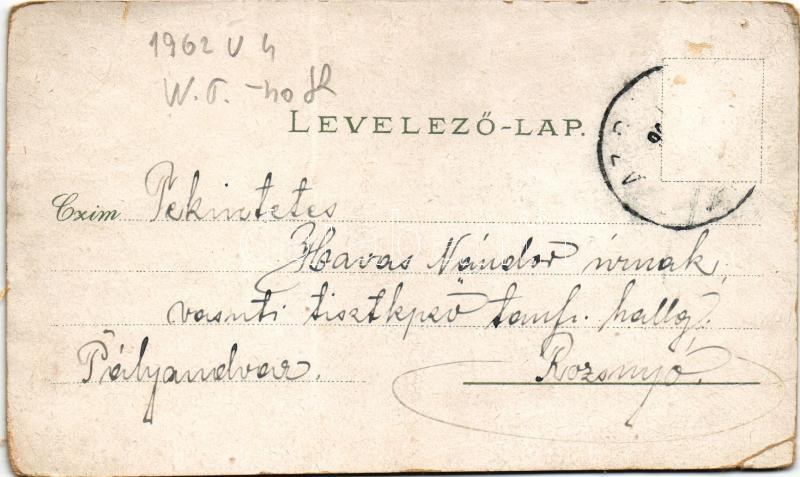 1962 V 4
W. T.
LEVELEZŐ-LAP.
Czim Tekintetes
Havas Nándor úrnak,
vasuti tisztkpző tanf. hallg.
Pályaudvar. Rozsnyó.